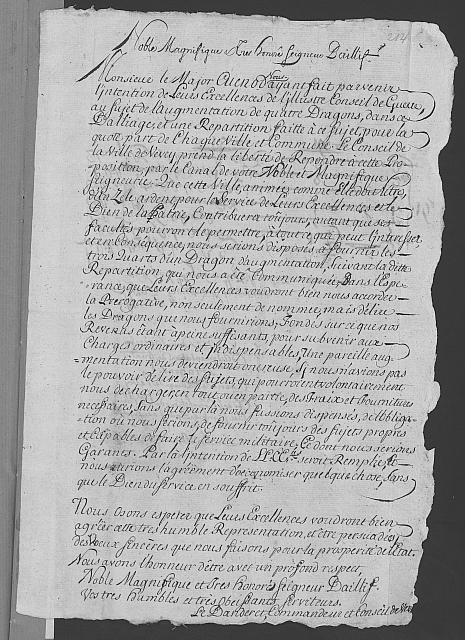 214
Noble Magnifique & Tres honoré Seigneur Baillif.
Monsieur le Major Cuenod ayant fait parvenir
Nous
l'intention de Leurs Excellences de l'illustre Conseil de Guerre,
au sujet de l'augmentation de quatre Dragons, dans ce
Balliage, et une Repartition faitte à ce sujet, pour la
quote part de Chaque Ville et Commune. Le Conseil de
la Ville de Vevey prend la liberté de Repondre à cette Pro-
position, par le Canal de votre Noble et Magnifique
Seigneurie. Que cette Ville, animée comme Elle doit l'être,
d'un Zele ardent pour le Service de Leurs Excellences et le
Bien de la Patrie, Contribuera toujours, autant que ses
facultés pouront le permettre, à tout ce qui peut l'interesser,
et en Consequence, nous serions disposés à fournir les
trois Quarts d'un Dragon d'augmentation, suivant la ditte
Repartition, qui nous a été Communiquée, Dans l'Espe-
rance, que Leurs Excellences voudront bien nous accorder
la Prerogative, non seulement de nommer, mais d'élire
les Dragons que nous fournirions, Fondés sur ce que nos
Revenus étant à peine suffisants, pour subvenir aux
Charges ordinaires et indispensables, Une pareille aug-
mentation nous deviendroit onereuse, Si nous n'avions pas
le pouvoir d'élire des sujets, qui pourroient volontairement
nous décharger, en tout ou en partie, des Fraix et fournitures
necessaires, sans que par là nous fussions dispensés, de l'obliga-
tion où nous serions, de fournir toujours des sujets propres
et Capables de faire le service militaire, Ce dont nous serions
Garants. Par là l'intention de LL. EE.ces seroit Remplie, Et
nous aurions l'agrement d'économiser quelque chose, sans
que le Bien du service en souffrit.
Nous osons esperer que Leurs Excellences voudront bien
agréer cette tres humble Representation, et être persuadées
des Vœux sincères que nous faisons pour la prosperité de l'Etat.
Nous avons l'honneur d'être avec un profond respect,
Noble Magnifique et Tres honoré Seigneur Baillif.
Vos tres humbles et tres obeissants serviteurs.
Le Banderet, Commandeur et Conseil de Vevey